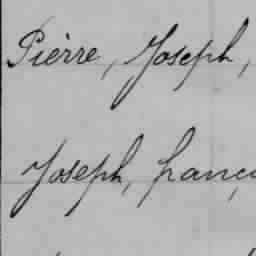 Pièrre, Joseph,
Joseph, franç